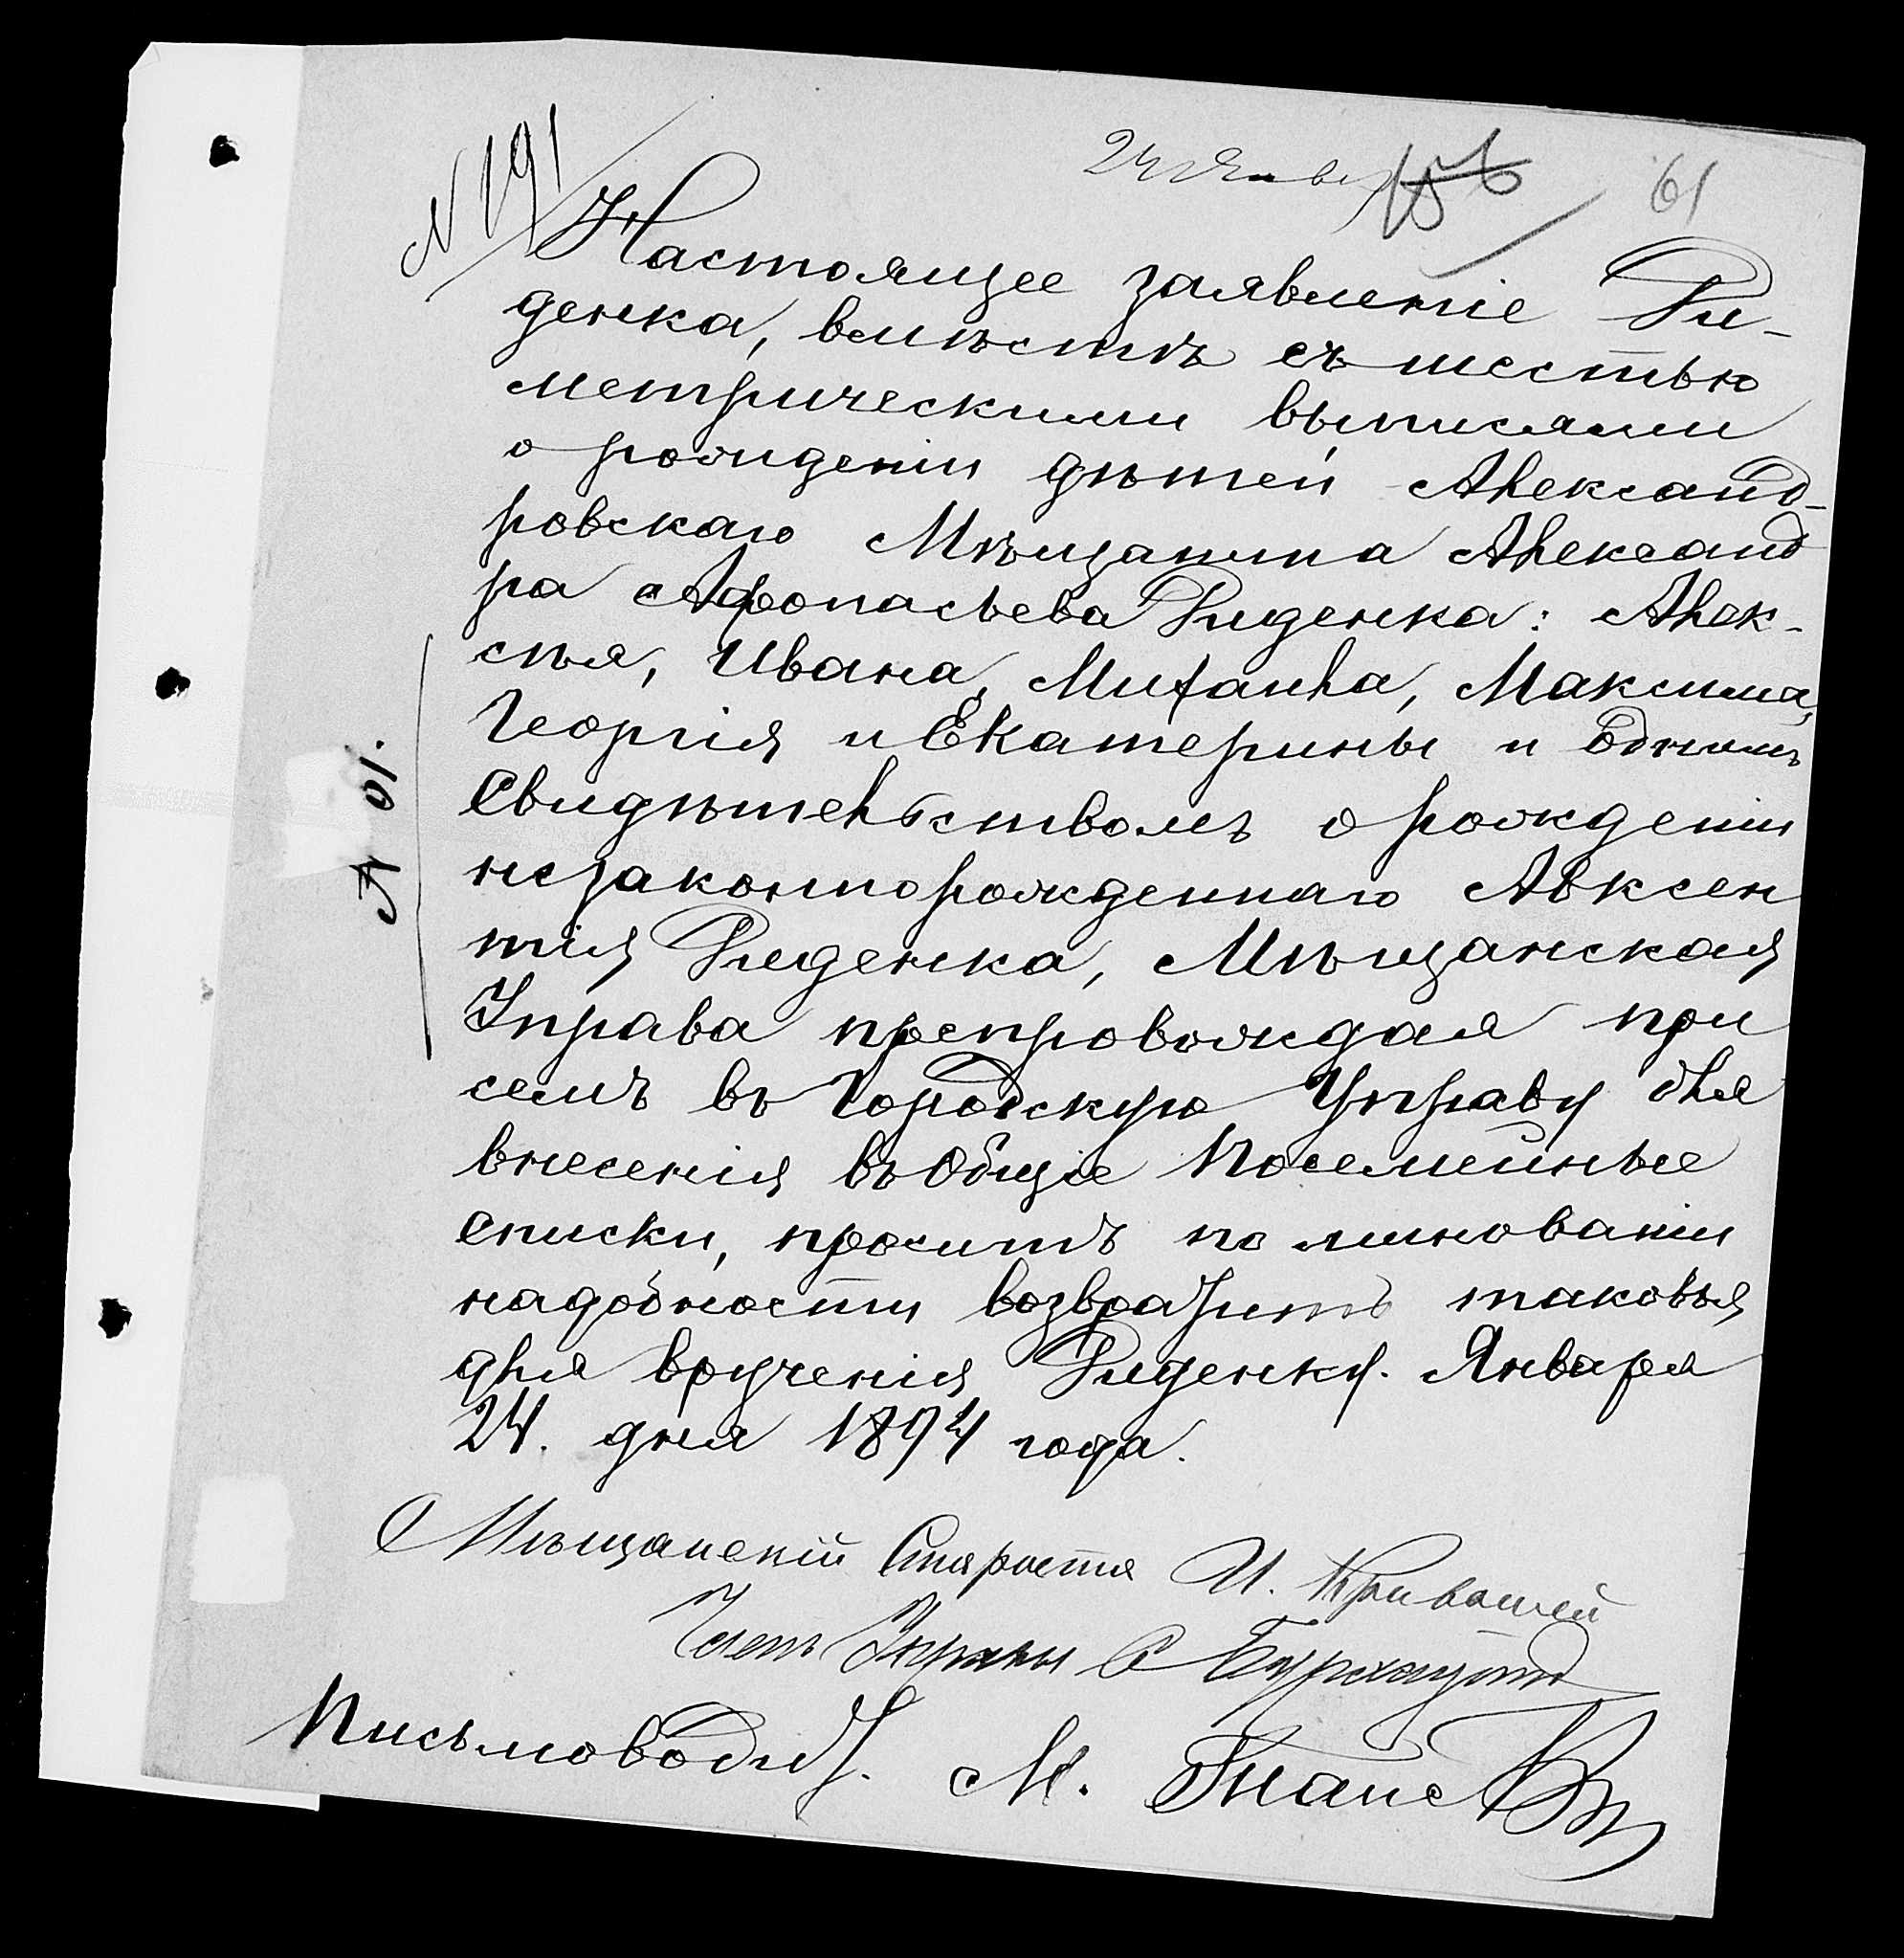 N 191
24 Январ 156 61
Настоящее заявленіе Ри-
денка, вмѣстѣ съ шестью
метрическими выписями
о рожденіи дѣтей Александ-
ровскаго Мѣщанина Александ
ра Афонасьева Риденка: Алек-
сѣя, Ивана, Михаила, Максима,
Георгія и Екатерины и однимъ
Свидѣтельствомъ о рожденіи
незаконнорожденнаго Авксен
тія Риденка, Мѣщанская
Управа препровождая при
семъ въ Городскую Управу для
внесенія въ Общіе Посемейные
списки, проситъ по минованіи
надобности возвратить таковыя
для врученія Риденку. Января
24. дня 1894 года.
Мѣщанскій Староста И.
Членъ Управы
Письмоводит. М.